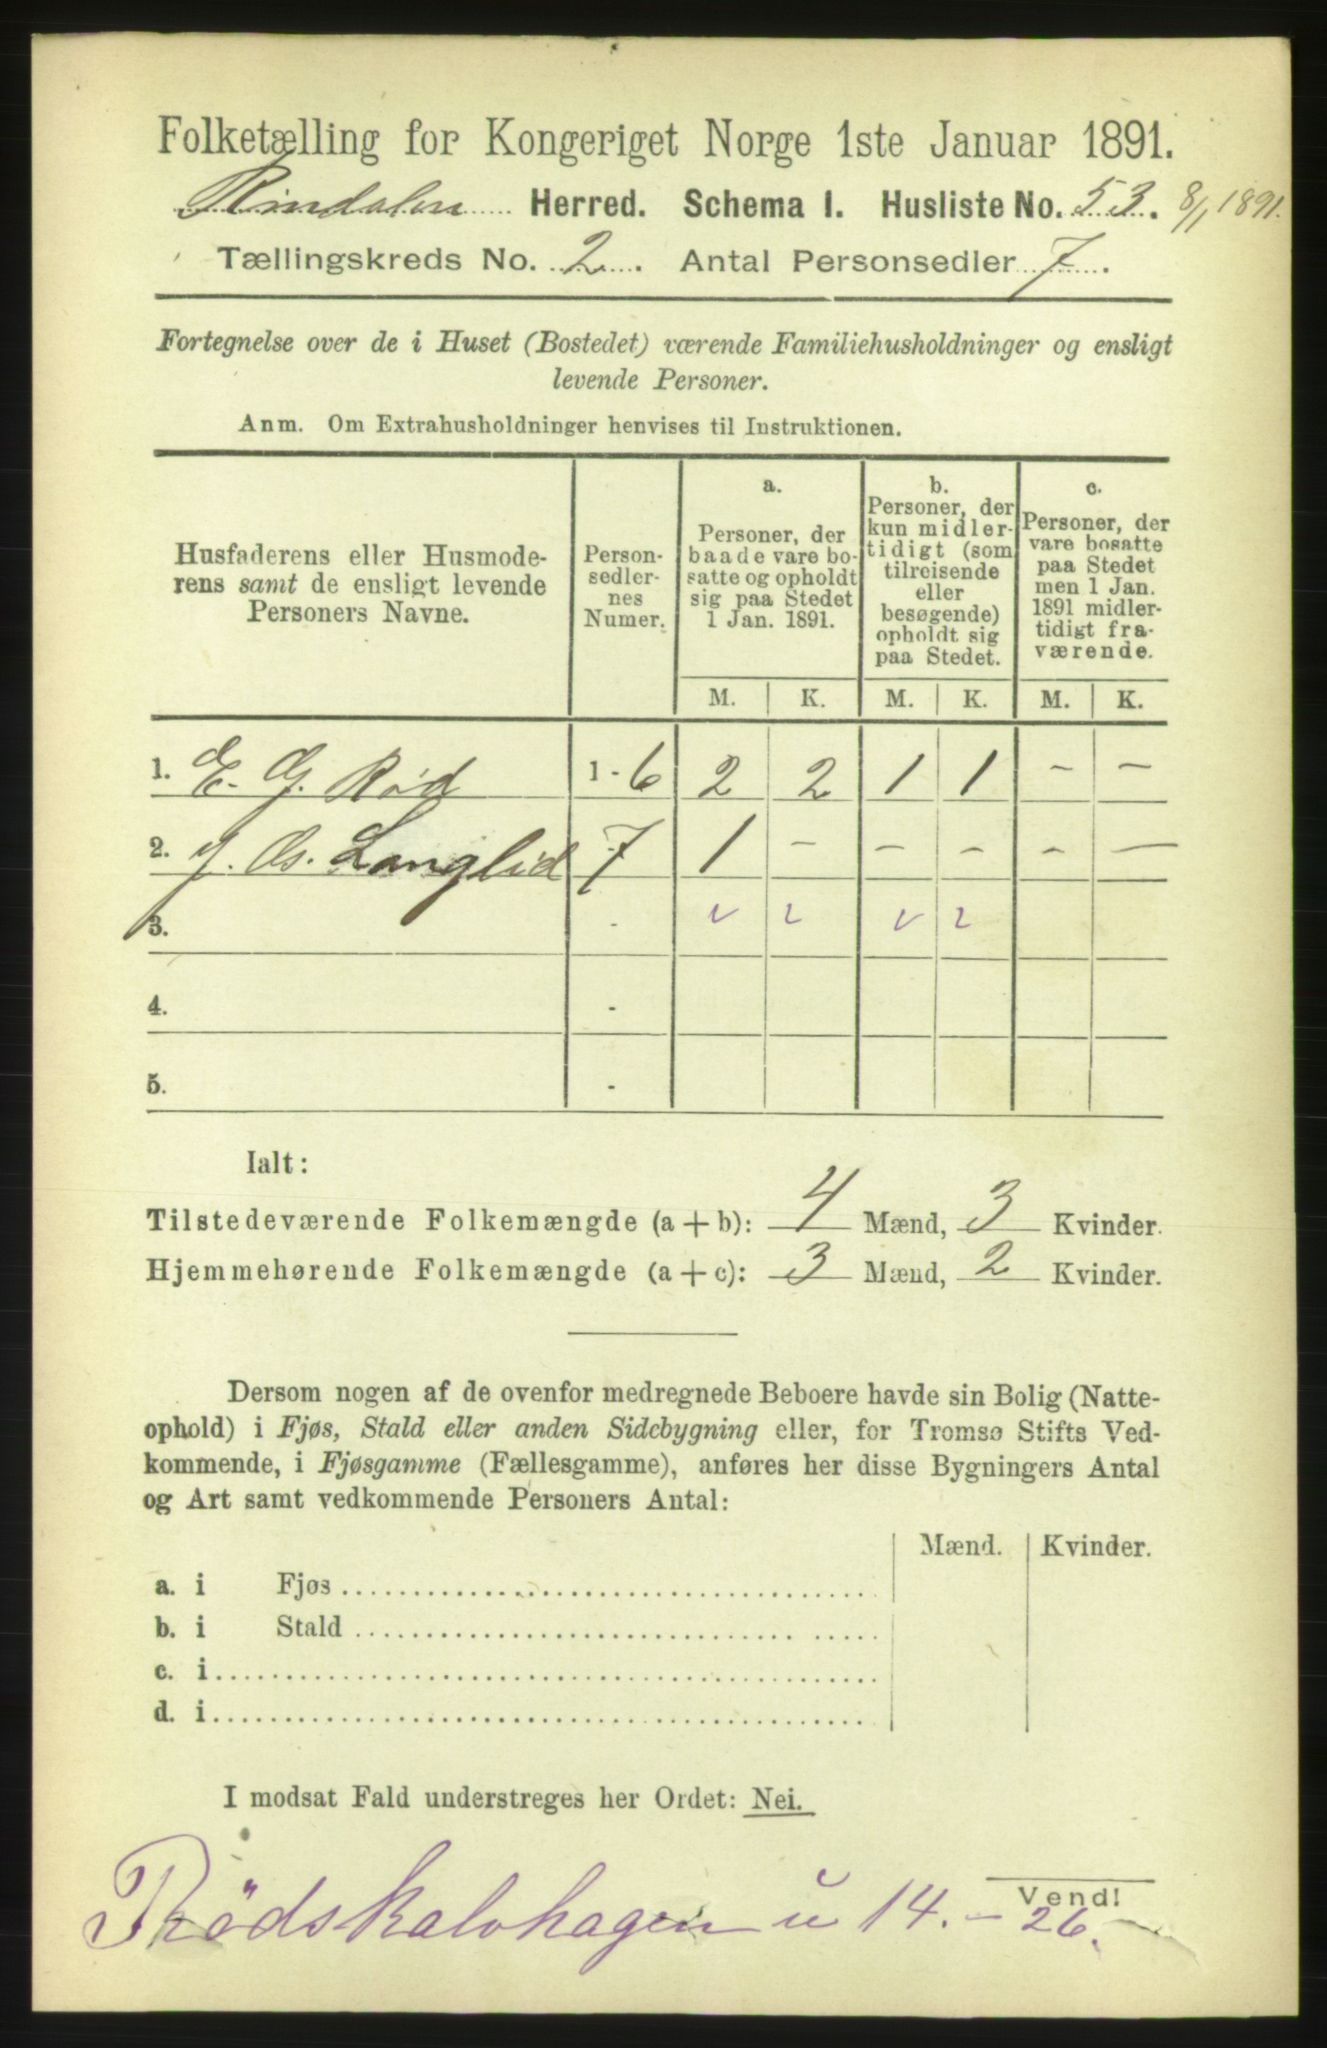 Folketælling for Kongeriget Norge 1ste Januar 1891.
Rindalen Herred. Schema I. Husliste No. 53. 8/1 1891.
Tællingskreds No. 2. Antal Personsedler 7.
Fortegnelse over de i Huset (Bostedet) værende Familiehusholdninger og ensligt
levende Personer.
Anm. Om Extrahusholdninger henvises til Instruktionen.
Husfaderens eller Husmode-
rens samt de ensligt levende
Personers Navne.
Person-
sedler-
nes
Numer.
a.
Personer, der
baade vare bo-
satte og opholdt
sig paa Stedet
1 Jan. 1891.
b.
Personer, der
kun midler-
tidigt (som
tilreisende
eller
besøgende)
opholdt sig
paa Stedet.
c.
Personer, der
vare bosatte
paa Stedet
men 1 Jan.
1891 midler-
tidigt fra-
værende.
M. K. M. K. M. K.
1. E. G. Rød 1 - 6 2 2 1 1 - -
2. J. Os. Langlid 7 1 - - - - -
3. -
4. -
5. -
Ialt:
Tilstedeværende Folkemængde (a + b): 4 Mænd, 3 Kvinder.
Hjemmehørende Folkemængde (a + c): 3 Mænd, 2 Kvinder.
Dersom nogen af de ovenfor medregnede Beboere havde sin Bolig (Natte-
ophold) i Fjøs, Stald eller anden Sidebygning eller, for Tromsø Stifts Ved-
kommende, i Fjøsgamme (Fællesgamme), anføres her disse Bygningers Antal
og Art samt vedkommende Personers Antal:
Mænd. Kvinder.
a. i Fjøs
b. i Stald
c. i
d. i
I modsat Fald understreges her Ordet: Nei.
Vend!
Rødskalvhagen u 14. - 26.